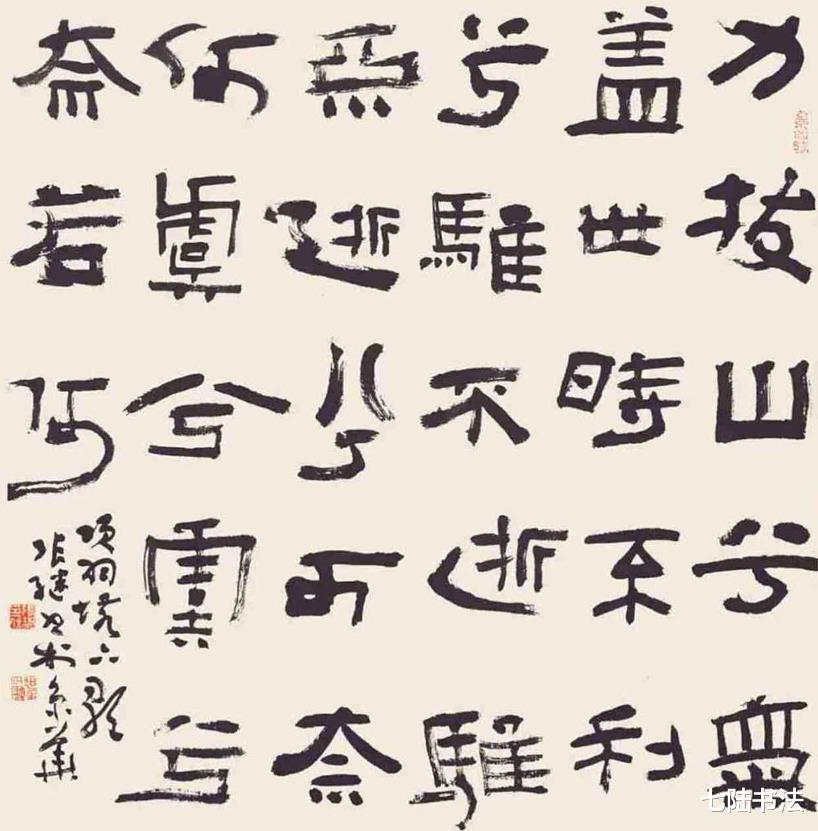 力拔山兮氣
盖世時不利
兮騅不逝騅
不逝兮可奈
何虞兮虞兮
奈若何
项羽垓下歌
张继书於京華
七陆书法